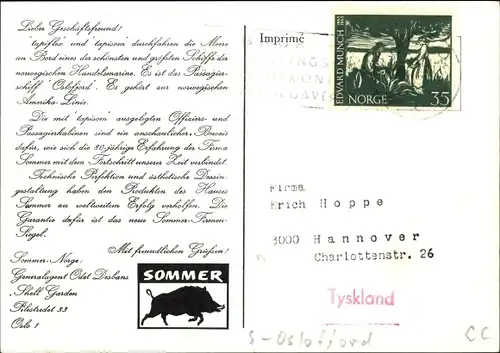 Lieber Geschäftsfreund!
"tapiflex" und "tapisom" durchfahren die Meere
an Bord eines der schönsten und größten Schiffe der
norwegischen Handelsmarine. Es ist das Passagier-
schiff "Oslofjord". Es gehört zur norwegischen
Amerika-Linie.
Die mit "tapisom" ausgelegten Offiziers- und
Passagierkabinen sind ein anschaulicher Beweis
dafür, wie sich die 80-jährige Erfahrung der Firma
Sommer mit dem Fortschritt unserer Zeit verbindet.
Technische Perfektion und ästhetische Dessin-
gestaltung haben den Produkten des Hauses
Sommer zu weltweitem Erfolg verholfen. Die
Garantie dafür ist das neue Sommer-Firmen-
Siegel.
Mit freundlichen Grüßen!
Sommer-Norge:
Generalagent Odet Desbans
"Shell Garden
Pilestredet 33
Oslo 1
SOMMER
Imprimé
EDVARD MUNCH
NORGE 35
Firma
Erich Hoppe
3000 Hannover
Charlottenstr. 26
Tyskland
S-Oslofjord
CC